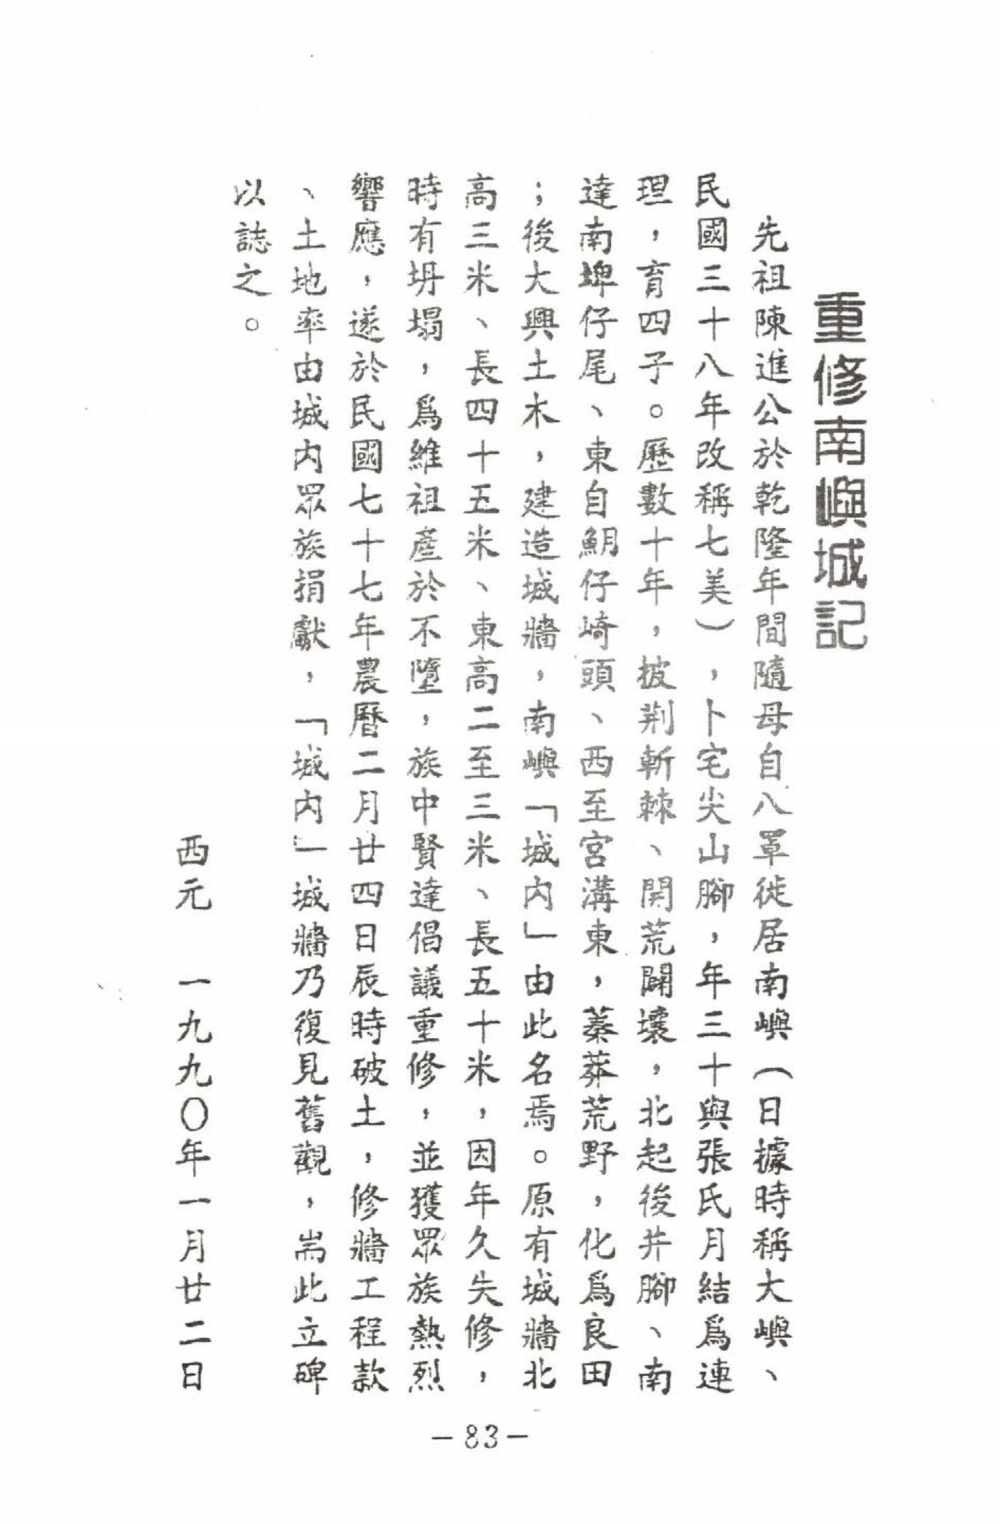 重修南嶼城記
先祖陳進公於乾隆年間隨母自八罩徙居南嶼（日據時稱大嶼、
民國三十八年改稱七美），卜宅尖山腳，年三十與張氏月結爲連
理，育四子。歷數十年，披荆斬棘、開荒闢壤，北起後井腳、南
達南埤仔尾、東自鮂仔崎頭、西至宮溝東，蓁莽荒野，化爲良田
；後大興土木，建造城牆，南嶼「城內」由此名焉。原有城牆北
高三米、長四十五米、東高二至三米、長五十米，因年久失修，
時有坍塌，爲維祖產於不墮，族中賢達倡議重修，並獲眾族熱烈
響應，遂於民國七十七年農曆二月廿四日辰時破土，修牆工程款
、土地率由城內眾族捐獻，「城內」城牆乃復見舊觀，耑此立碑
以誌之。
西元　一九九〇年一月廿二日
－83－